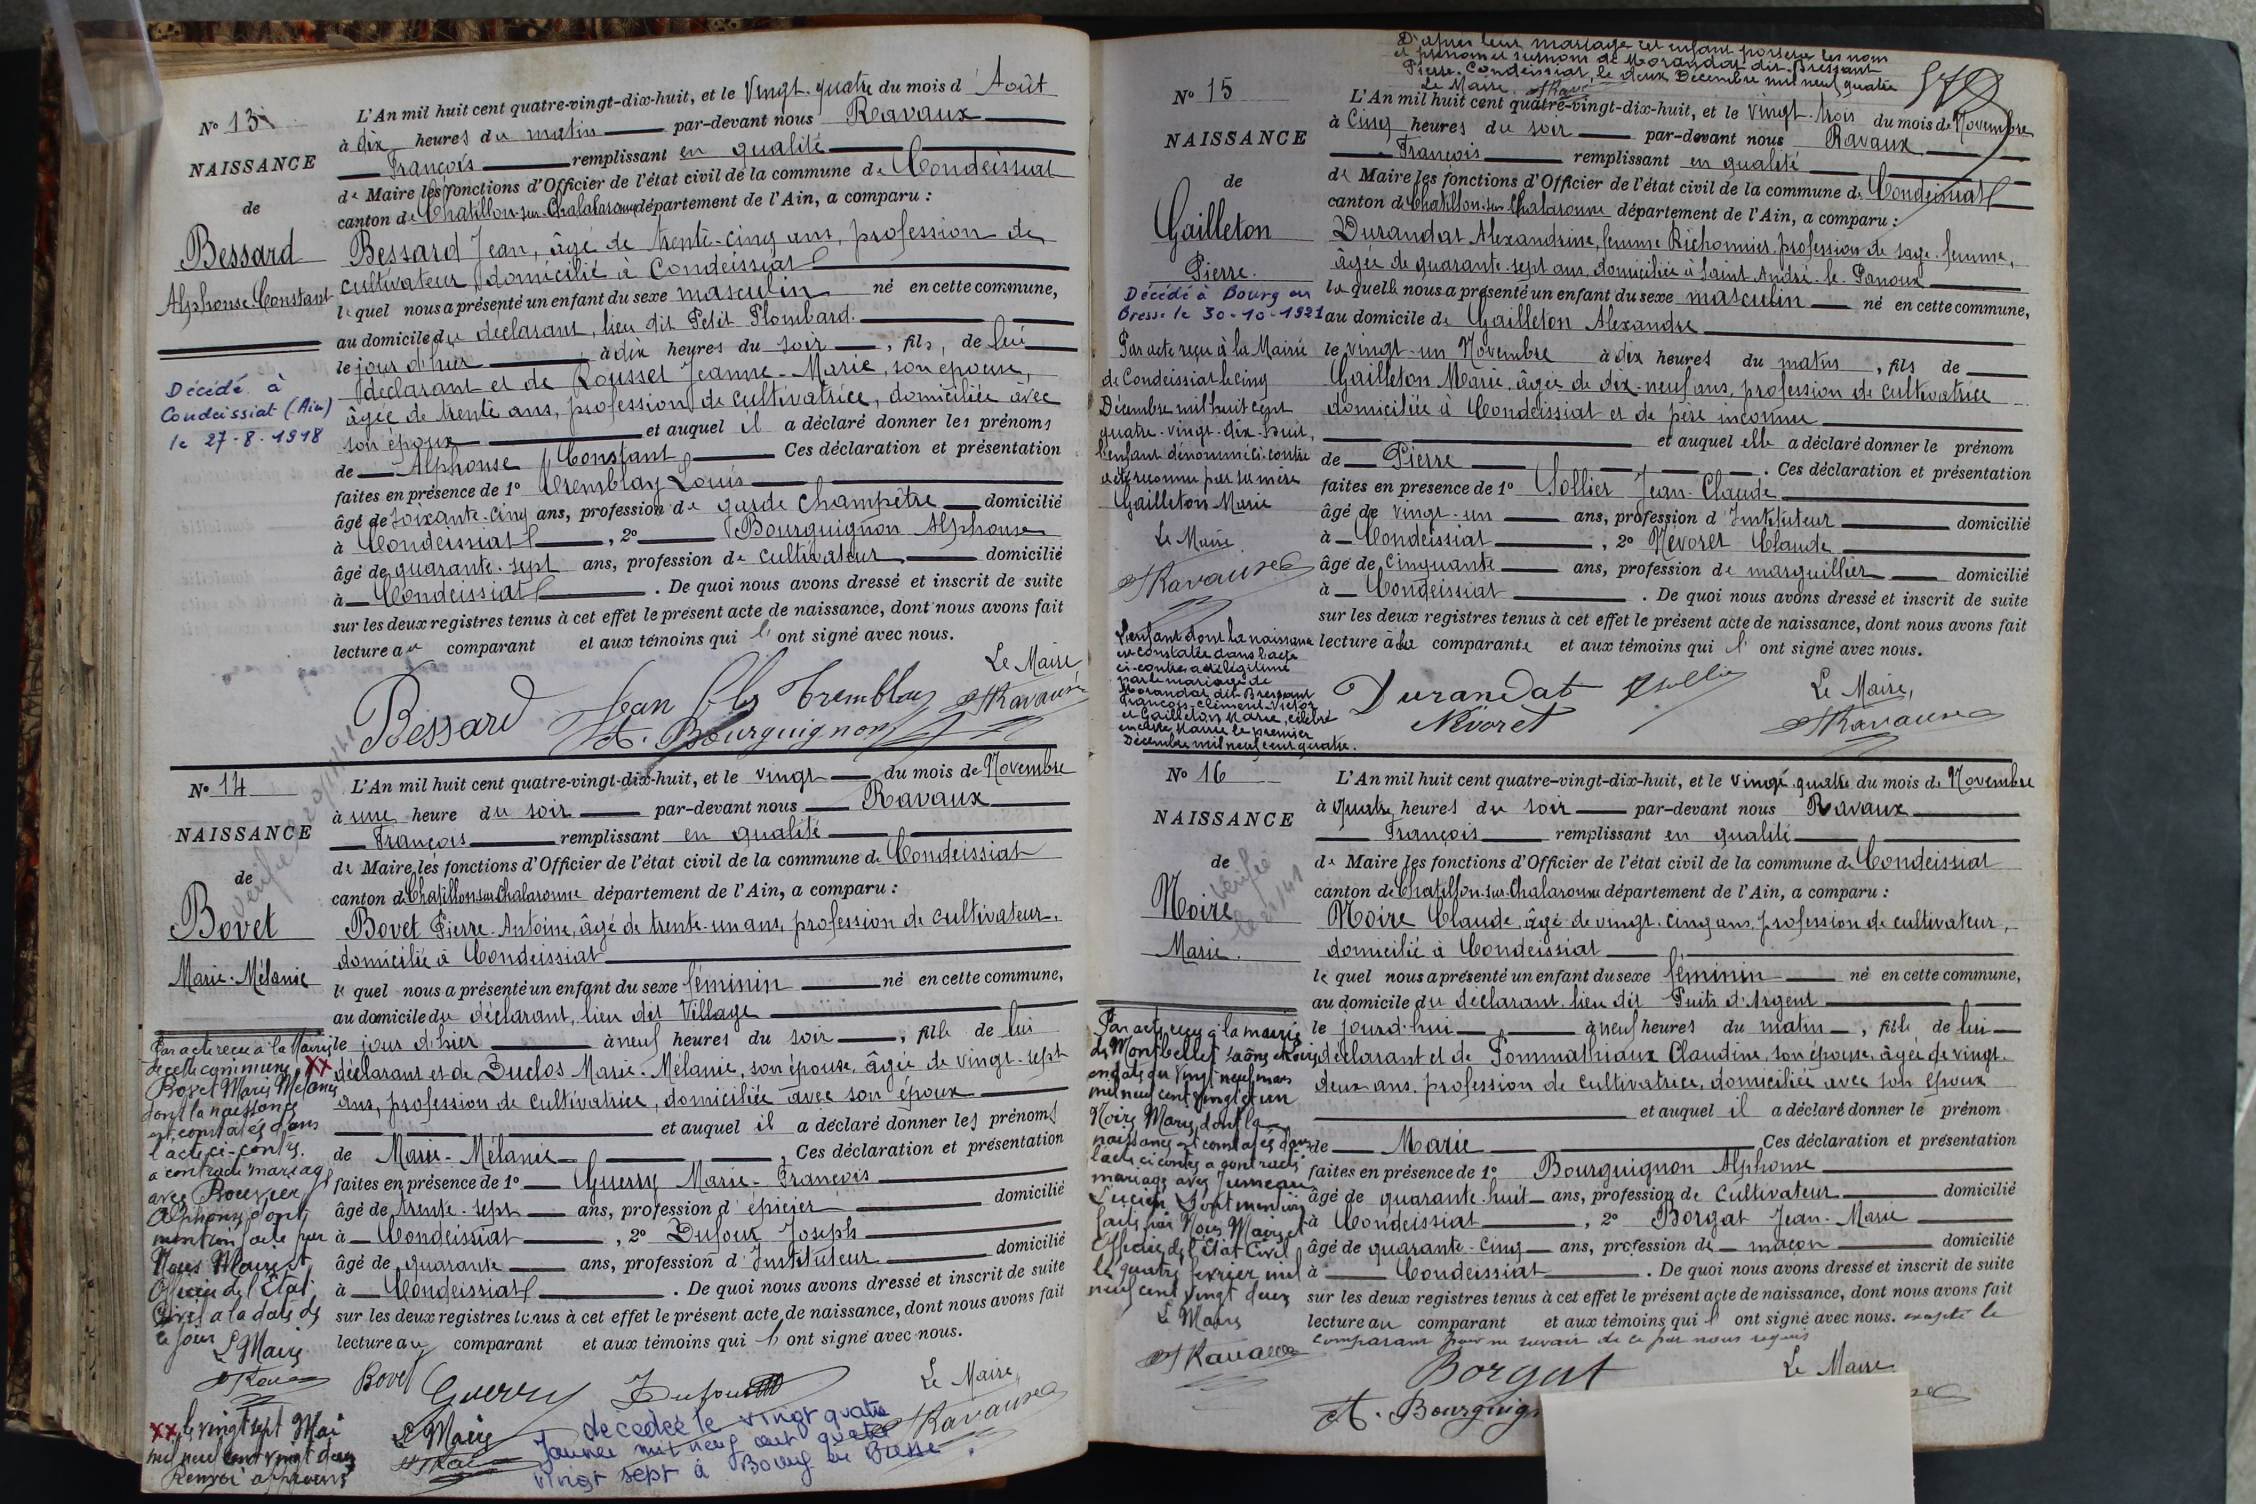 No 13
NAISSANCE
de
Bessard
Alphonse Constant
Décédé à
Condeissiat (Ain)
le 27-8-1918
L'An mil huit cent quatre-vingt-dix-huit, et le Vingt-quatre du mois d'Août
à dix heures du matin par-devant nous Ravaux
François remplissant en qualité
de Maire les fonctions d'Officier de l'état civil de la commune de Condeissiat
canton de Chatillon-sur-Chalaronne département de l'Ain, a comparu :
Bessard Jean, âgé de trente-cinq ans, profession de
cultivateur, domicilié à Condeissiat
lequel nous a présenté un enfant du sexe masculin né en cette commune,
au domicile du déclarant, lieu dit Petit Plombard.
le jour d'hier à dix heures du soir, fils, de lui
déclarant et de Rousset Jeanne-Marie, son épouse,
âgée de trente ans, profession de cultivatrice, domiciliée avec
son époux et auquel il a déclaré donner les prénoms
de Alphonse Constant Ces déclaration et présentation
faites en présence de 1o Tremblay Louis
âgé de soixante-cinq ans, profession de garde champêtre domicilié
à Condeissiat, 2o Bourguignon Alphonse
âgé de quarante-sept ans, profession de cultivateur, domicilié
à Condeissiat. De quoi nous avons dressé et inscrit de suite
sur les deux registres tenus à cet effet le présent acte de naissance, dont nous avons fait
lecture au comparant et aux témoins qui l'ont signé avec nous.
Le Maire
Bessard Jean Tremblay Ravaux
A. Bourguignon
No 14
NAISSANCE
de
Bovet
Marie-Mélanie
Par acte reçu à la Mairie
de cette commune, xx
Bovet Marie Mélanie
dont la naissance
est constatée dans
l'acte ci-contre
a contracté mariage
avec Bouvier
Alphonse dont
mention faite par
Nous Maire et
Officier de l'État
Civil à la date de
ce jour
Le Maire
Ravaux
xx le vingt sept Mai
mil neuf cent vingt deux
Renvoi approuvé
L'An mil huit cent quatre-vingt-dix-huit, et le vingt du mois de Novembre
à une heure du soir par-devant nous Ravaux
François remplissant en qualité
de Maire les fonctions d'Officier de l'état civil de la commune de Condeissiat
canton de Chatillon sur Chalaronne département de l'Ain, a comparu :
Bovet Pierre-Antoine, âgé de trente-un ans, profession de cultivateur,
domicilié à Condeissiat
lequel nous a présenté un enfant du sexe féminin né en cette commune,
au domicile du déclarant, lieu dit Village
le jour d'hier à neuf heures du soir, fille de lui
déclarant et de Duclos Marie-Mélanie, son épouse, âgée de vingt-sept
ans, profession de cultivatrice, domiciliée avec son époux
et auquel il a déclaré donner les prénoms
de Marie-Mélanie, Ces déclaration et présentation
faites en présence de 1o Guerry Marie-François
âgé de trente-sept ans, profession d'épicier domicilié
à Condeissiat, 2o Dufour Joseph
âgé de quarante ans, profession d'Instituteur domicilié
à Condeissiat. De quoi nous avons dressé et inscrit de suite
sur les deux registres tenus à cet effet le présent acte de naissance, dont nous avons fait
lecture au comparant et aux témoins qui l'ont signé avec nous.
Bovet Guerry Dufour Le Maire,
Ravaux
Le Maire
décédée le vingt quatre
Janvier mil neuf cent quatre
vingt sept à Bourg en Bresse.
D'après leur mariage cet enfant portera les nom
et prénom et surnom de Morandat dit Bressant
Pierre. Condeissiat, le deux Décembre mil neuf quatre
Le Maire
No 15
NAISSANCE
de
Gailleton
Pierre.
Décédé à Bourg en
Bresse le 30-10-1921
Par acte reçu à la Mairie
de Condeissiat le cinq
Décembre mil huit cent
quatre-vingt-dix-huit,
l'enfant dénommé ci-contre
a été reconnu par sa mère
Gailleton Marie
Le Maire
Ravaux
L'enfant dont la naissance
est constatée dans l'acte
ci-contre a été légitimé
par le mariage de
Morandat dit Bressant
François-Clément-Victor
et Gailleton Marie, célébré
en cette Mairie le premier
Décembre mil neuf cent quatre.
L'An mil huit cent quatre-vingt-dix-huit, et le vingt-trois du mois de Novembre
à Cinq heures du soir par-devant nous Ravaux
François remplissant en qualité
de Maire les fonctions d'Officier de l'état civil de la commune de Condeissiat
canton de Chatillon-sur-Chalaronne département de l'Ain, a comparu :
Durandat Alexandrine, femme Richonnier, profession de sage-femme,
âgée de quarante-sept ans, domiciliée à Saint André-le-Panoux
laquelle nous a présenté un enfant du sexe masculin né en cette commune,
au domicile de Gailleton Alexandre
le vingt-un Novembre à dix heures du matin, fils de
Gailleton Marie, âgée de dix-neuf ans, profession de cultivatrice
domiciliée à Condeissiat et de père inconnu
et auquel elle a déclaré donner le prénom
de Pierre. Ces déclaration et présentation
faites en présence de 1o Sollier Jean-Claude
âgé de vingt-un ans, profession d'Instituteur domicilié
à Condeissiat, 2o Névoret Claude
âgé de cinquante ans, profession de marguillier domicilié
à Condeissiat. De quoi nous avons dressé et inscrit de suite
sur les deux registres tenus à cet effet le présent acte de naissance, dont nous avons fait
lecture à la comparante et aux témoins qui l'ont signé avec nous.
Durandat Sollier Le Maire,
Névoret Ravaux
No 16
NAISSANCE
de
Noire
Marie.
Vérifié
Par acte reçu à la mairie
de Montbellet Saône et Loire
en date du vingt neuf mars
mil neuf cent vingt et un
Noire Marie dont la
naissance est constatée dans
l'acte ci contre a contracté
mariage avec Jumeau
Lucien. Dont mention
faite par Nous Maire et
Officier de l'État Civil
le quatre février mil
neuf cent vingt deux
Le Maire
Ravaux
L'An mil huit cent quatre-vingt-dix-huit, et le vingt-quatre du mois de Novembre
à quatre heures du soir par-devant nous Ravaux
François remplissant en qualité
de Maire les fonctions d'Officier de l'état civil de la commune de Condeissiat
canton de Chatillon-sur-Chalaronne département de l'Ain, a comparu :
Noire Claude, âgé de vingt-cinq ans, profession de cultivateur,
domicilié à Condeissiat
lequel nous a présenté un enfant du sexe féminin né en cette commune,
au domicile du déclarant, lieu dit Puits d'Argent
le jourd'hui à neuf heures du matin, fille de lui
déclarant et de Pommathiaux Claudine, son épouse, âgée de vingt-
deux ans, profession de cultivatrice, domiciliée avec son époux
et auquel il a déclaré donner le prénom
de Marie Ces déclaration et présentation
faites en présence de 1o Bourguignon Alphonse
âgé de quarante-huit ans, profession de cultivateur domicilié
à Condeissiat, 2o Borgat Jean-Marie
âgé de quarante-cinq ans, profession de maçon domicilié
à Condeissiat. De quoi nous avons dressé et inscrit de suite
sur les deux registres tenus à cet effet le présent acte de naissance, dont nous avons fait
lecture au comparant et aux témoins qui l'ont signé avec nous. excepté le
comparant pour ne savoir de ce par nous requis
Borgat Le Maire
A. Bourguign